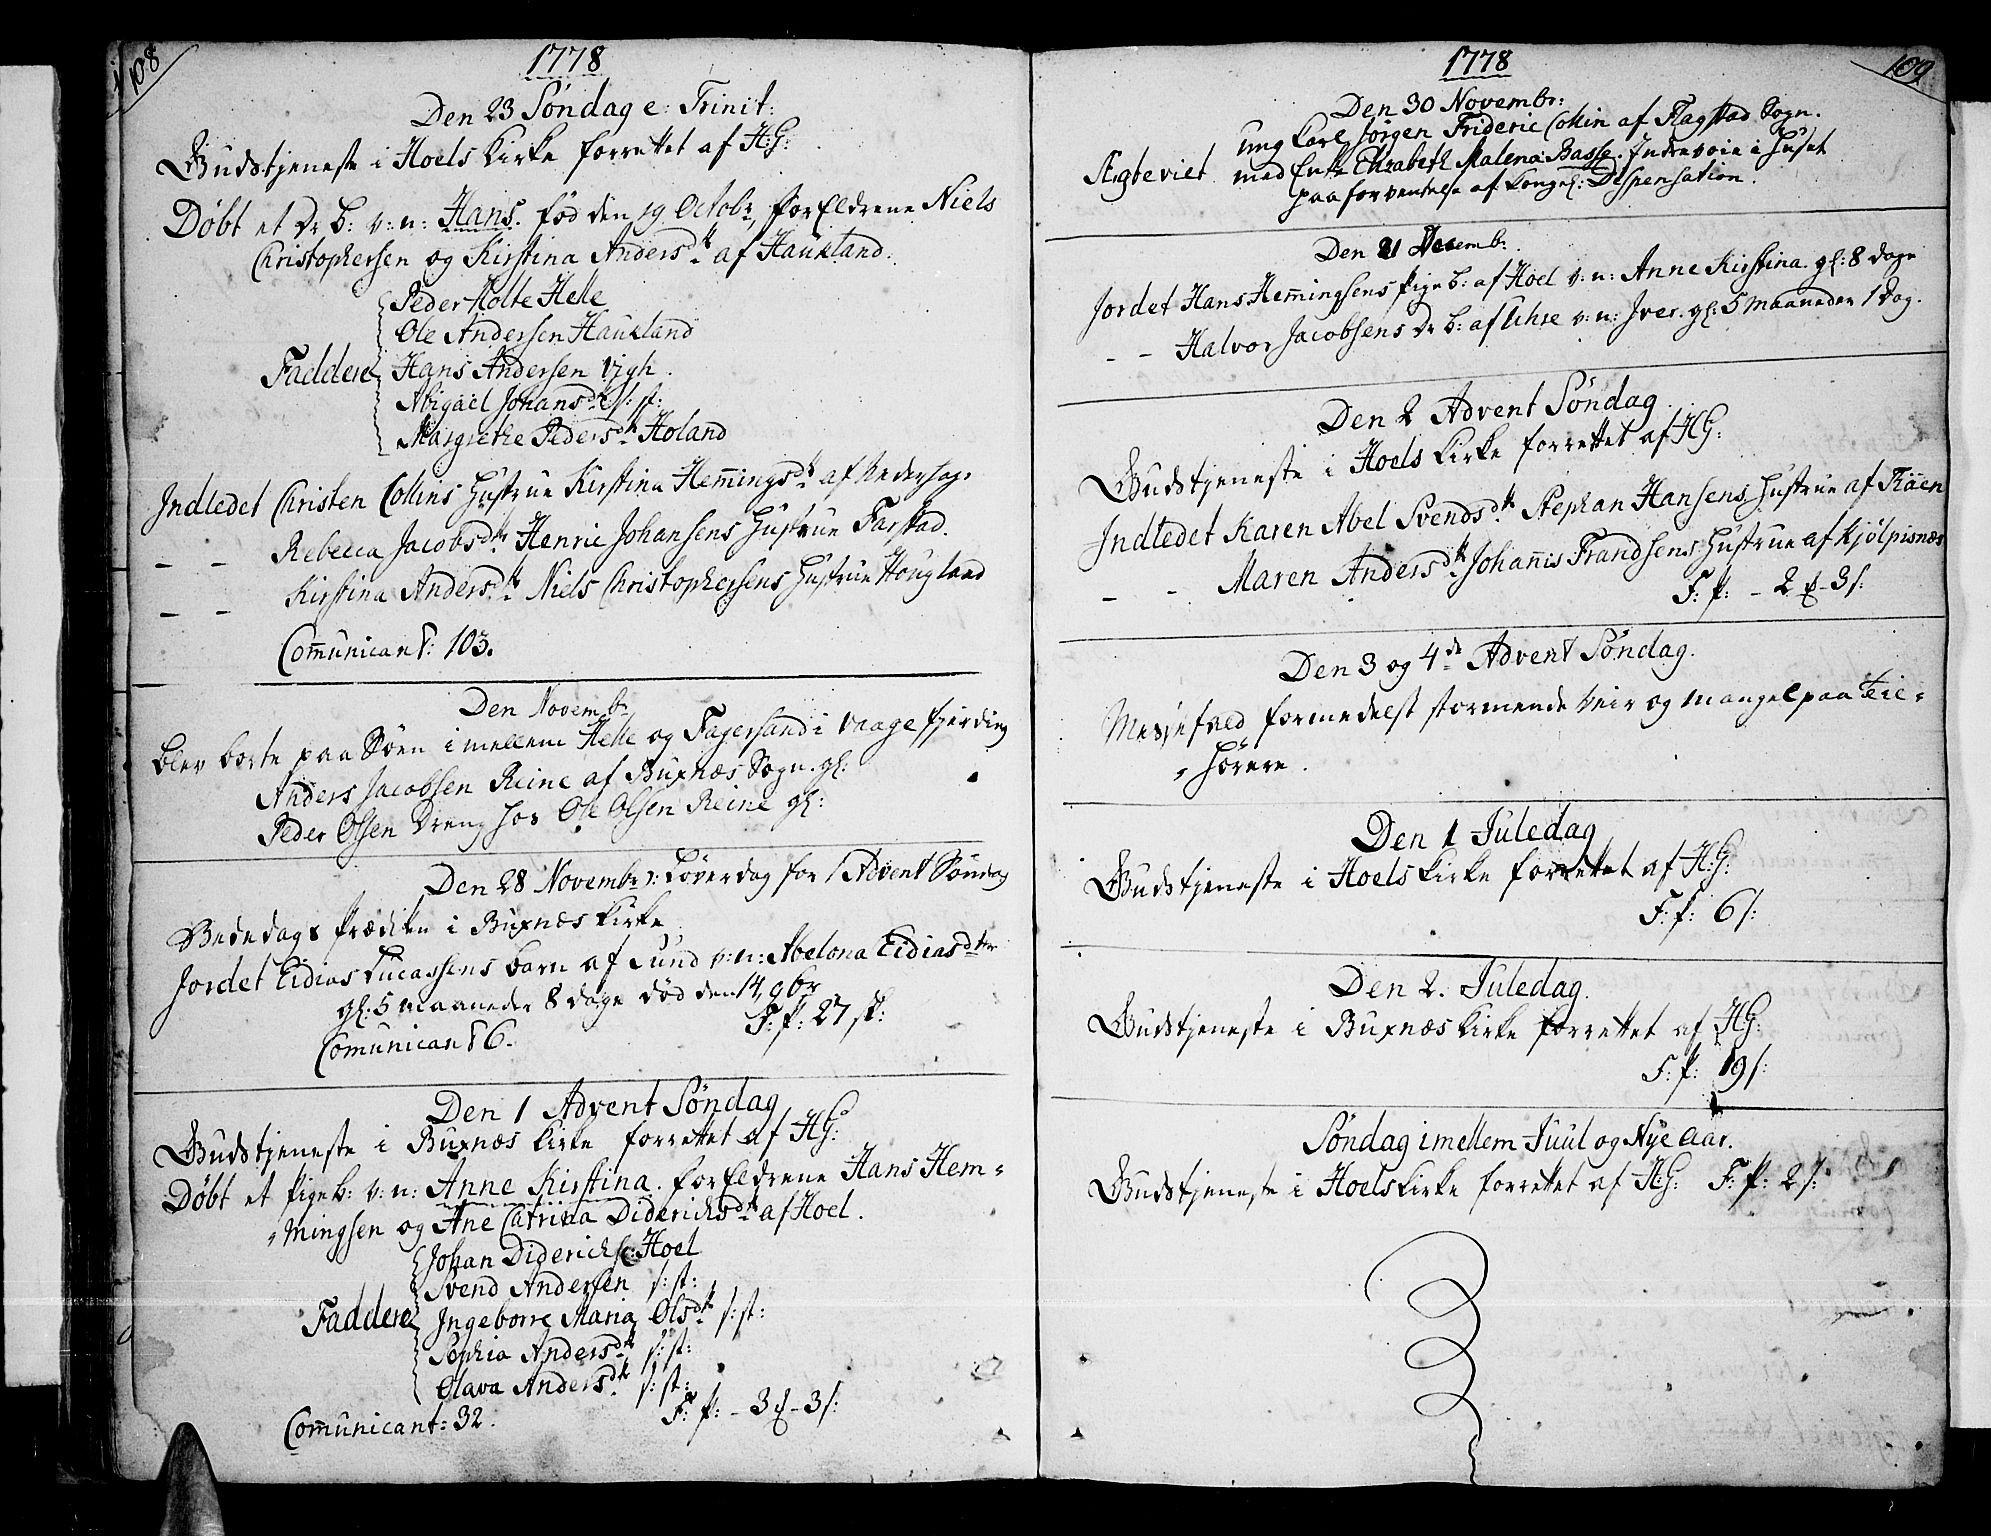 108
1778
Den 23 Søndag e: Trinit:
Gudstjeneste i Hoels Kirke forrettet af H:G:
Døbt et Dr B: v: n: Hans. fød den 19 Octobr, forEldrene Niels
Christophersen og Kirstina Andersdtr af Haukland.
Peder Holte Helle
Ole Andersen Haukland
Faddere Hans Andersen Vigh.
Abigael Johansdtr s: st:
Margrethe Pedersdtr Holand
Indledet Christen Collins Hustrue Kirstina Hemingsdtr af
- - Rebecca Jacobsdtr Henric Johansens Hustrue Farstad.
- - Kirstina Andersdtr Niels Christophersens Hustrue Hougland
Comunicant: 103.
Den Novembr
blev borte paa Søen imellem Helle og Fagersand i Vaage fjerding
Anders Jacobsen Reine af Buxnæs Sogn. gl:
Peder Olsen Dreng hos Ole Olsen Reine gl:
Den 28 Novembr: Løverdag for 1 Advent Søndag
Bededags Prædiken i Buxnæs Kirke
Jordet Eidias Lucassens barn af Sund v: n: Abelona Eidiasdtr
gl: 5 maaneder 8 dage død den 14, 9br
Comunicant 6. F: P: 27 sk:
Den 1 Advent Søndag
Gudstjeneste i Buxnæs Kirke forrettet af H:G:
Døbt et Pigeb: v: n: Anne Kirstina. forEldrene Hans Hem=
=mingsen og Ane Catrina Diderichsdtr af Hoel.
Johan Diderichs: Hoel
Svend Andersen s: st:
Faddere Ingeborre Maria Olsdtr s: st:
Sophia Andersdtr s: st:
Olava Andersdtr s: st:
Comunicant: 32. F: P: - 3 - 3 s:
109
1778
Den 30 Novembr:
Ung Carl Jørgen Frideric Collin af Flagstad Sogn.
Ægteviet med Enke Elisabeth Malena Basse. Indrevoie i Huset
paa forventelse af Kongel: Dispensation.
Den Decembr.
Jordet Hans Hemingsens Pigeb: af Hoel v: n: Anne Kirstina. gl: 8 dage
- - Halvor Jacobsens Dr b: af Uhre v: n: Iver. gl: 5 Maaneder 1 Dag.
Den 2 Advent Søndag
Gudstjeneste i Hoels Kirke forrettet af H:G:
Indledet Karen Abel Svendsdtr Stephan Hansens Hustrue af
- - Maren Andersdtr Johannis Frandsens Hustrue af Kjølpisnæs
F: P: - 2 - 3 s:
Den 3 og 4de Advent Søndag.
Messefald formedelst stormende Veir og mangel paa Til=
=hørere.
Den 1 Juledag
Gudstjeneste i Hoels Kirke forrettet af H:G:
F: P: 6 s:
Den 2. Juledag.
Gudstjeneste i Buxnæs Kirke forrettet af H:G:
F: P: 19 s:
Søndag imellem Juul og Nye Aar.
Gudstjeneste i Hoels Kirke forrettet af H:G: F: P: 2 s: